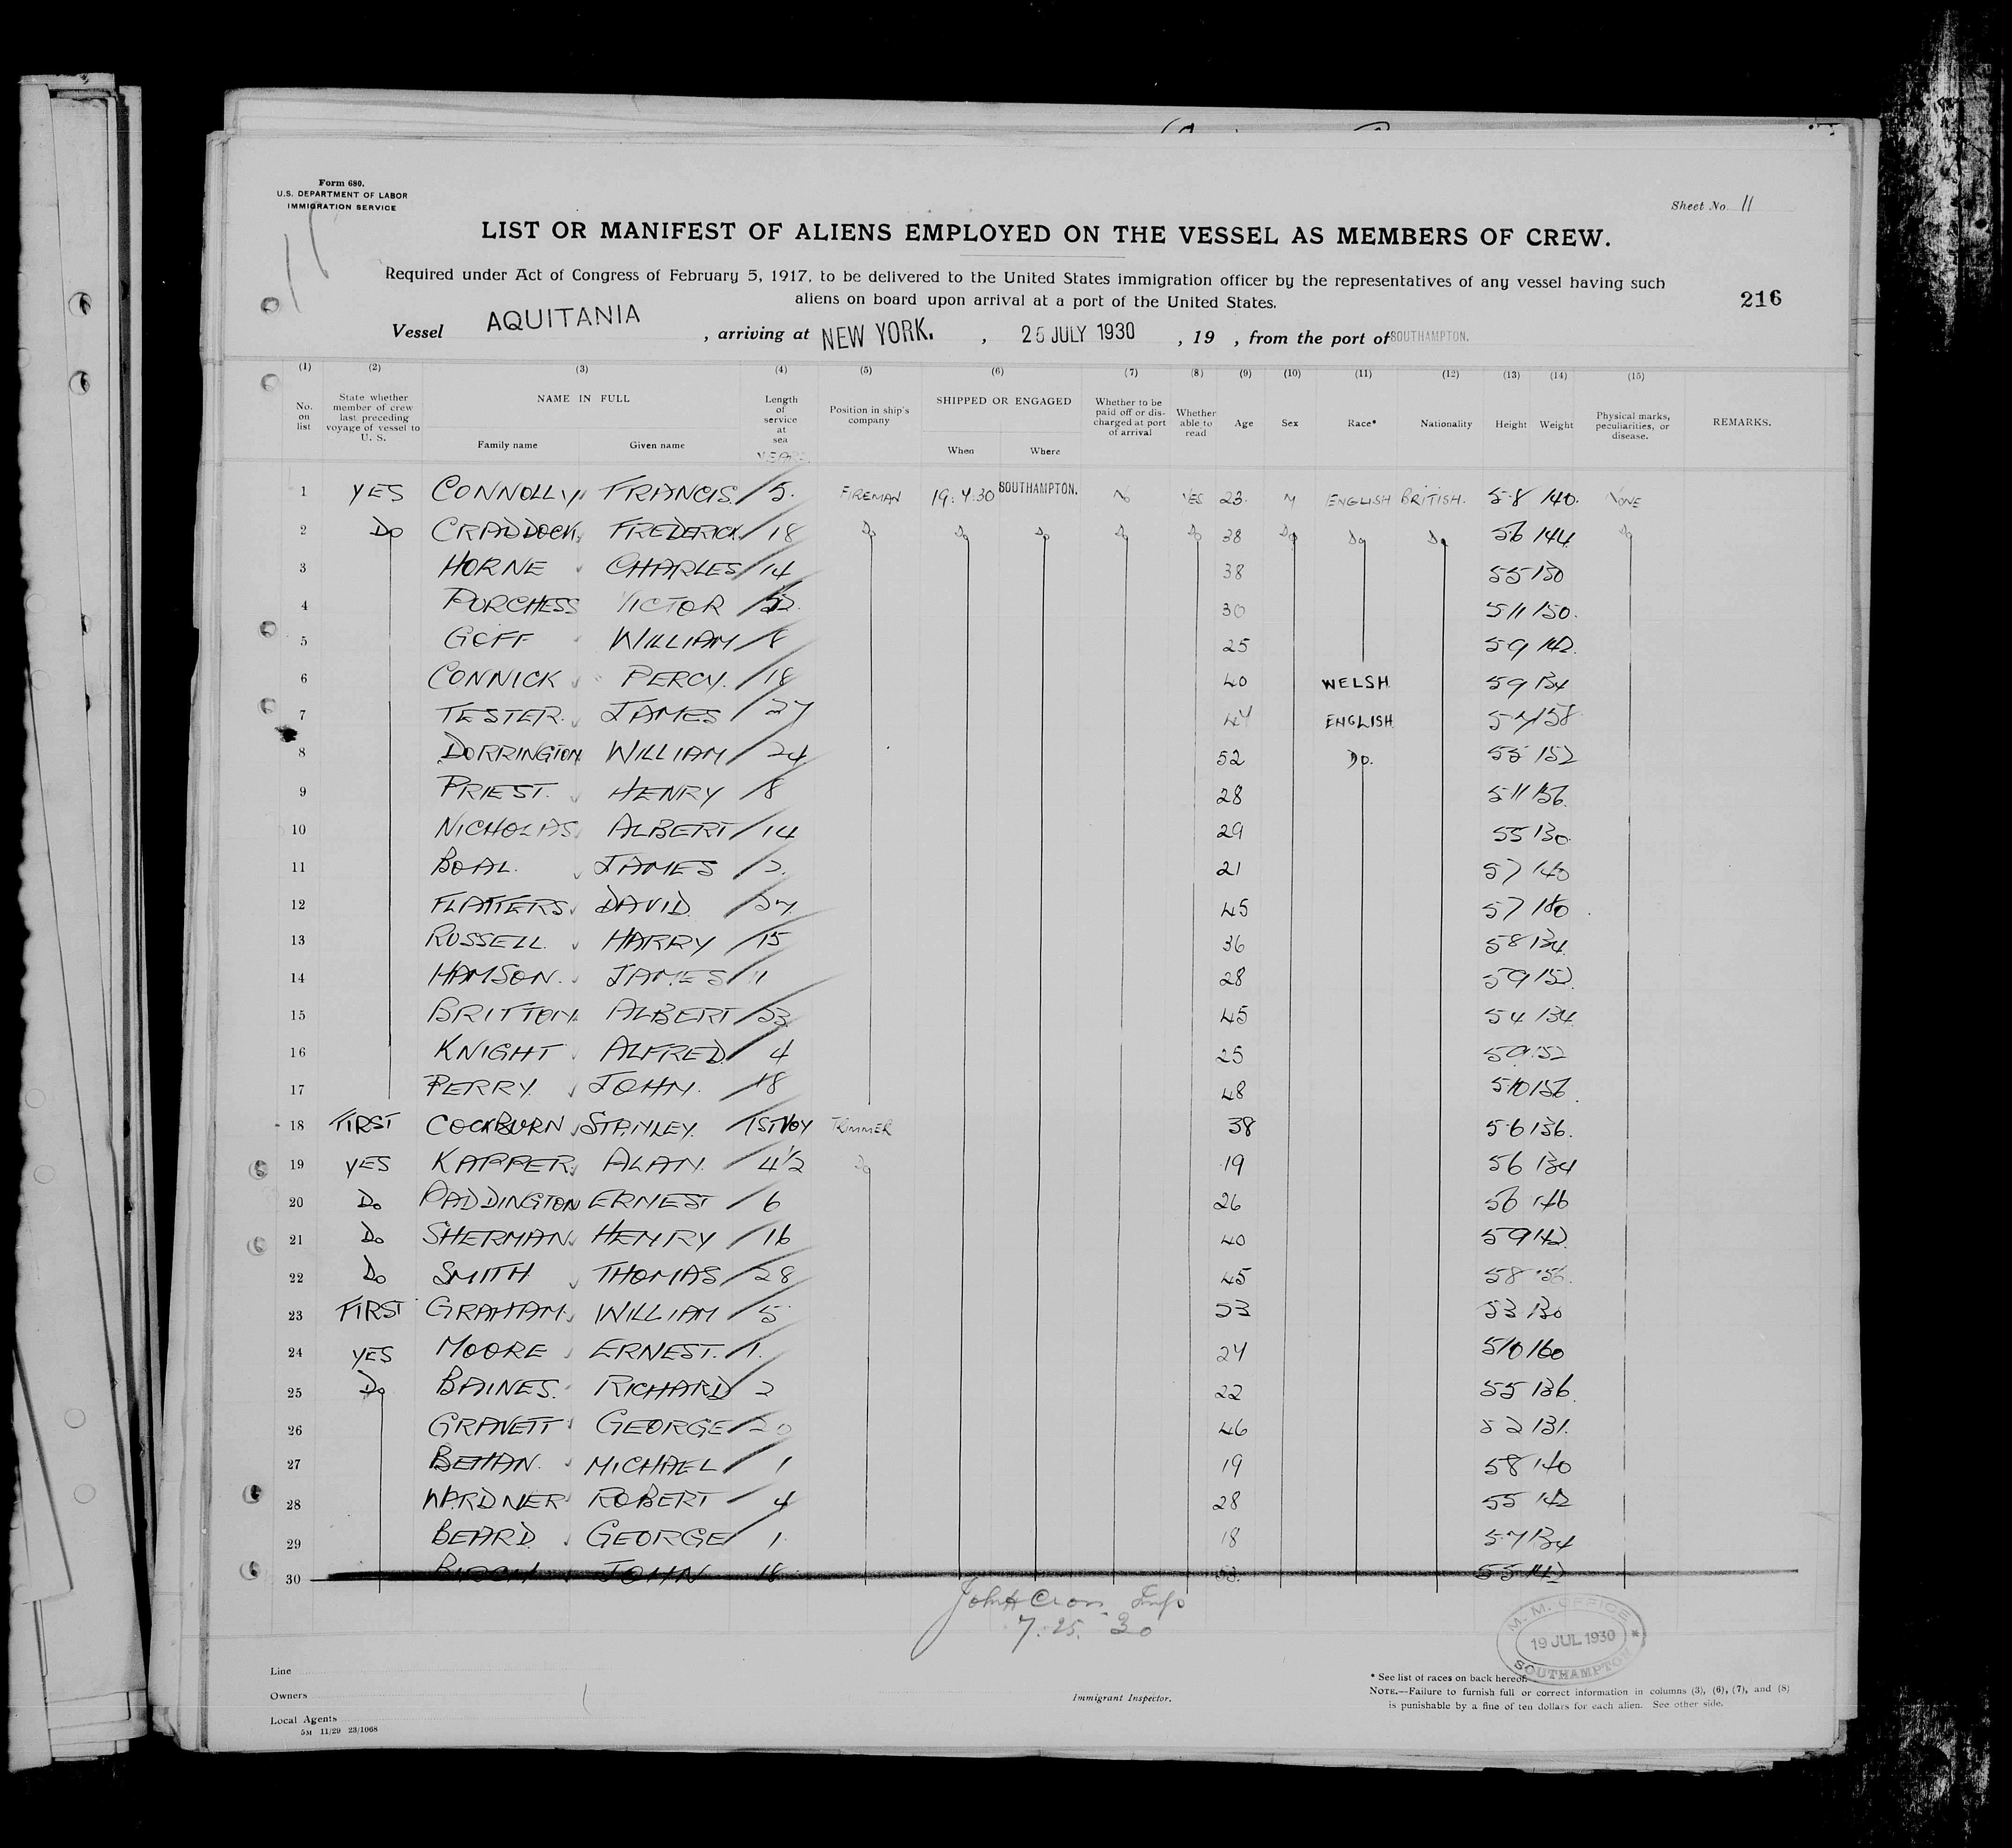 Form 680.
U.S. DEPARTMENT OF LABOR
IMMIGRATION SERVICE
Sheet No. 11
LIST OR MANIFEST OF ALIENS EMPLOYED ON THE VESSEL AS MEMBERS OF CREW.
Required under Act of Congress of February 5, 1917, to be delivered to the United States immigration officer by the representatives of any vessel having such
aliens on board upon arrival at a port of the United States.
216
Vessel AQUITANIA , arriving at NEW YORK. , 25 JULY 1930 , 19 , from the port of SOUTHAMPTON.
(1) (2) (3) (4) (5) (6) (7) (8) (9) (10) (11) (12) (13) (14) (15)
No. on list State whether member of crew last preceding voyage of vessel to U. S. NAME IN FULL Family name Given name Length of service at sea YEARS Position in ship's company SHIPPED OR ENGAGED When Where Whether to be paid off or discharged at port of arrival Whether able to read Age Sex Race* Nationality Height Weight Physical marks, peculiarities, or disease. REMARKS.
1 YES CONNOLLY FRANCIS. 5. FIREMAN SOUTHAMPTON. No YES 23. M ENGLISH BRITISH. 5·8 140. NONE
2 Do CRADDOCK FREDERICK 18 Do Do Do Do Do 38 Do Do Do 56 144 Do
3 HORNE CHARLES 14 38 55 130
4 PURCHESS VICTOR 30 511 150.
5 GOFF WILLIAM 8 25 59 142.
6 CONNICK PERCY. 18 40 WELSH 59 134
7 TESTER. JAMES 27 ENGLISH 158
8 DORRINGTON WILLIAM 24 52 Do. 55 152
9 PRIEST. HENRY 8 28 511 156.
10 NICHOLAS ALBERT 14 29 55 130
11 BOAL. JAMES 2. 21 57 140
12 FLATTERS DAVID 27 45 57 180
13 RUSSELL HARRY 15 36 58 134
14 HAMSON. JAMES 11 28 59 152.
15 BRITTON ALBERT 23 45 54 134
16 KNIGHT ALFRED 4 25 59 152
17 PERRY. JOHN. 18 48 510 156.
18 FIRST COCKBURN STANLEY. 1ST VOY TRIMMER 38 5·6 136.
19 YES KAPPER ALAN. 4½ Do 19 56 134
20 Do PADDINGTON ERNEST 6 26 56 146
21 Do SHERMAN HENRY 16 40 59 142.
22 Do SMITH THOMAS 28 45 58 156.
23 FIRST GRAHAM. WILLIAM 5 53 53 130
24 YES MOORE ERNEST. 1. 24 510 160
25 Do BAINES. RICHARD 2 22 55 136.
26 GRANETT GEORGE 20 46 52 131.
27 BEHAN. MICHAEL 1 19 58 140
28 WARDNER ROBERT 4 28 55 142
29 BEARD GEORGE 1 18 57 134
30 BIRCH JOHN 18 53. 55 142
7. 25. 30
M. M. OFFICE
19 JUL 1930
SOUTHAMPTON
Line
Owners
Local Agents
5M 11/29 23/1068
Immigrant Inspector.
* See list of races on back hereof.
NOTE.—Failure to furnish full or correct information in columns (3), (6), (7), and (8)
is punishable by a fine of ten dollars for each alien. See other side.